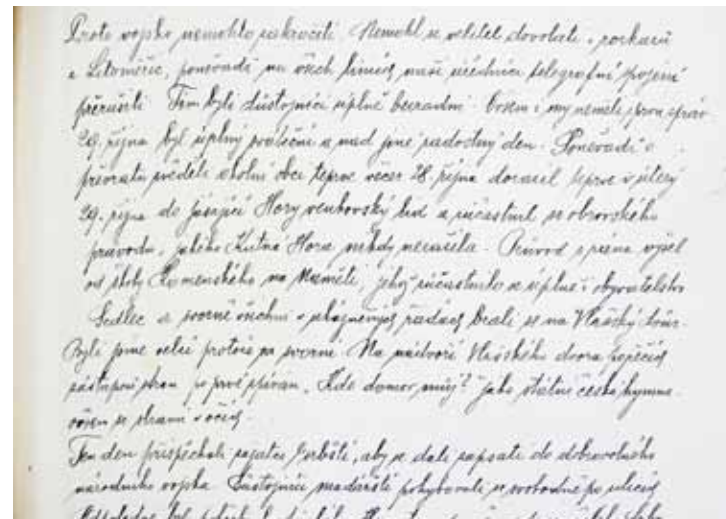 Proto vojsko nemohlo zakročiti. Nemohl se velitel dovolati i rozkazů
z Litoměřic, poněvadž na všech liniích naši úředníci telegrafní spojení
přerušili. Tím byli důstojníci úplně bezradni. Ovšem i my neměli jsme zpráv.
29. října byl úplný sváteční a nad jiné radostný den. Poněvadž o
převratu zvěděli okolní obci teprve večer 28. října dorazil teprve v úterý
29. října do jásající Hory venkovský lid a súčastnil se obrovského
průvodu, jakého Kutná Hora nikdy nezažila. Průvod z rána vyšel
od školy Komenského na Náměti, jehož súčastnilo se úplně i obyvatelstvo
Sedlec a svorně všichni v ukázněných řadách brali se na Vlašský dvůr.
Byli jsme velcí protože svorni. Na nádvoří Vlašského dvora
zástupci stran po prvé zpíván "Kde domov můj?" jako státní česká hymna
všem se slzami v očích.
Ten den přispěchali zajatci srbští, aby se dali zapsati do dobrovolného
národního vojska. Důstojníci maďarští pohybovali se svobodně po ulicích
Odpoledne byl